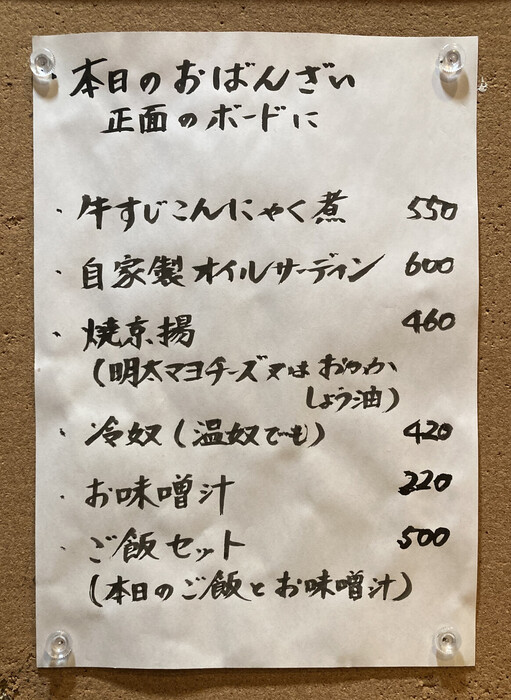 ・本日のおばんざい
正面のボードに
・牛すじこんにゃく煮 550
・自家製オイルサーディン 600
・焼京揚 460
(明太マヨチーズ又はおかか
しょう油)
・冷奴(温奴でも) 420
・お味噌汁 220
・ご飯セット 500
(本日のご飯とお味噌汁)